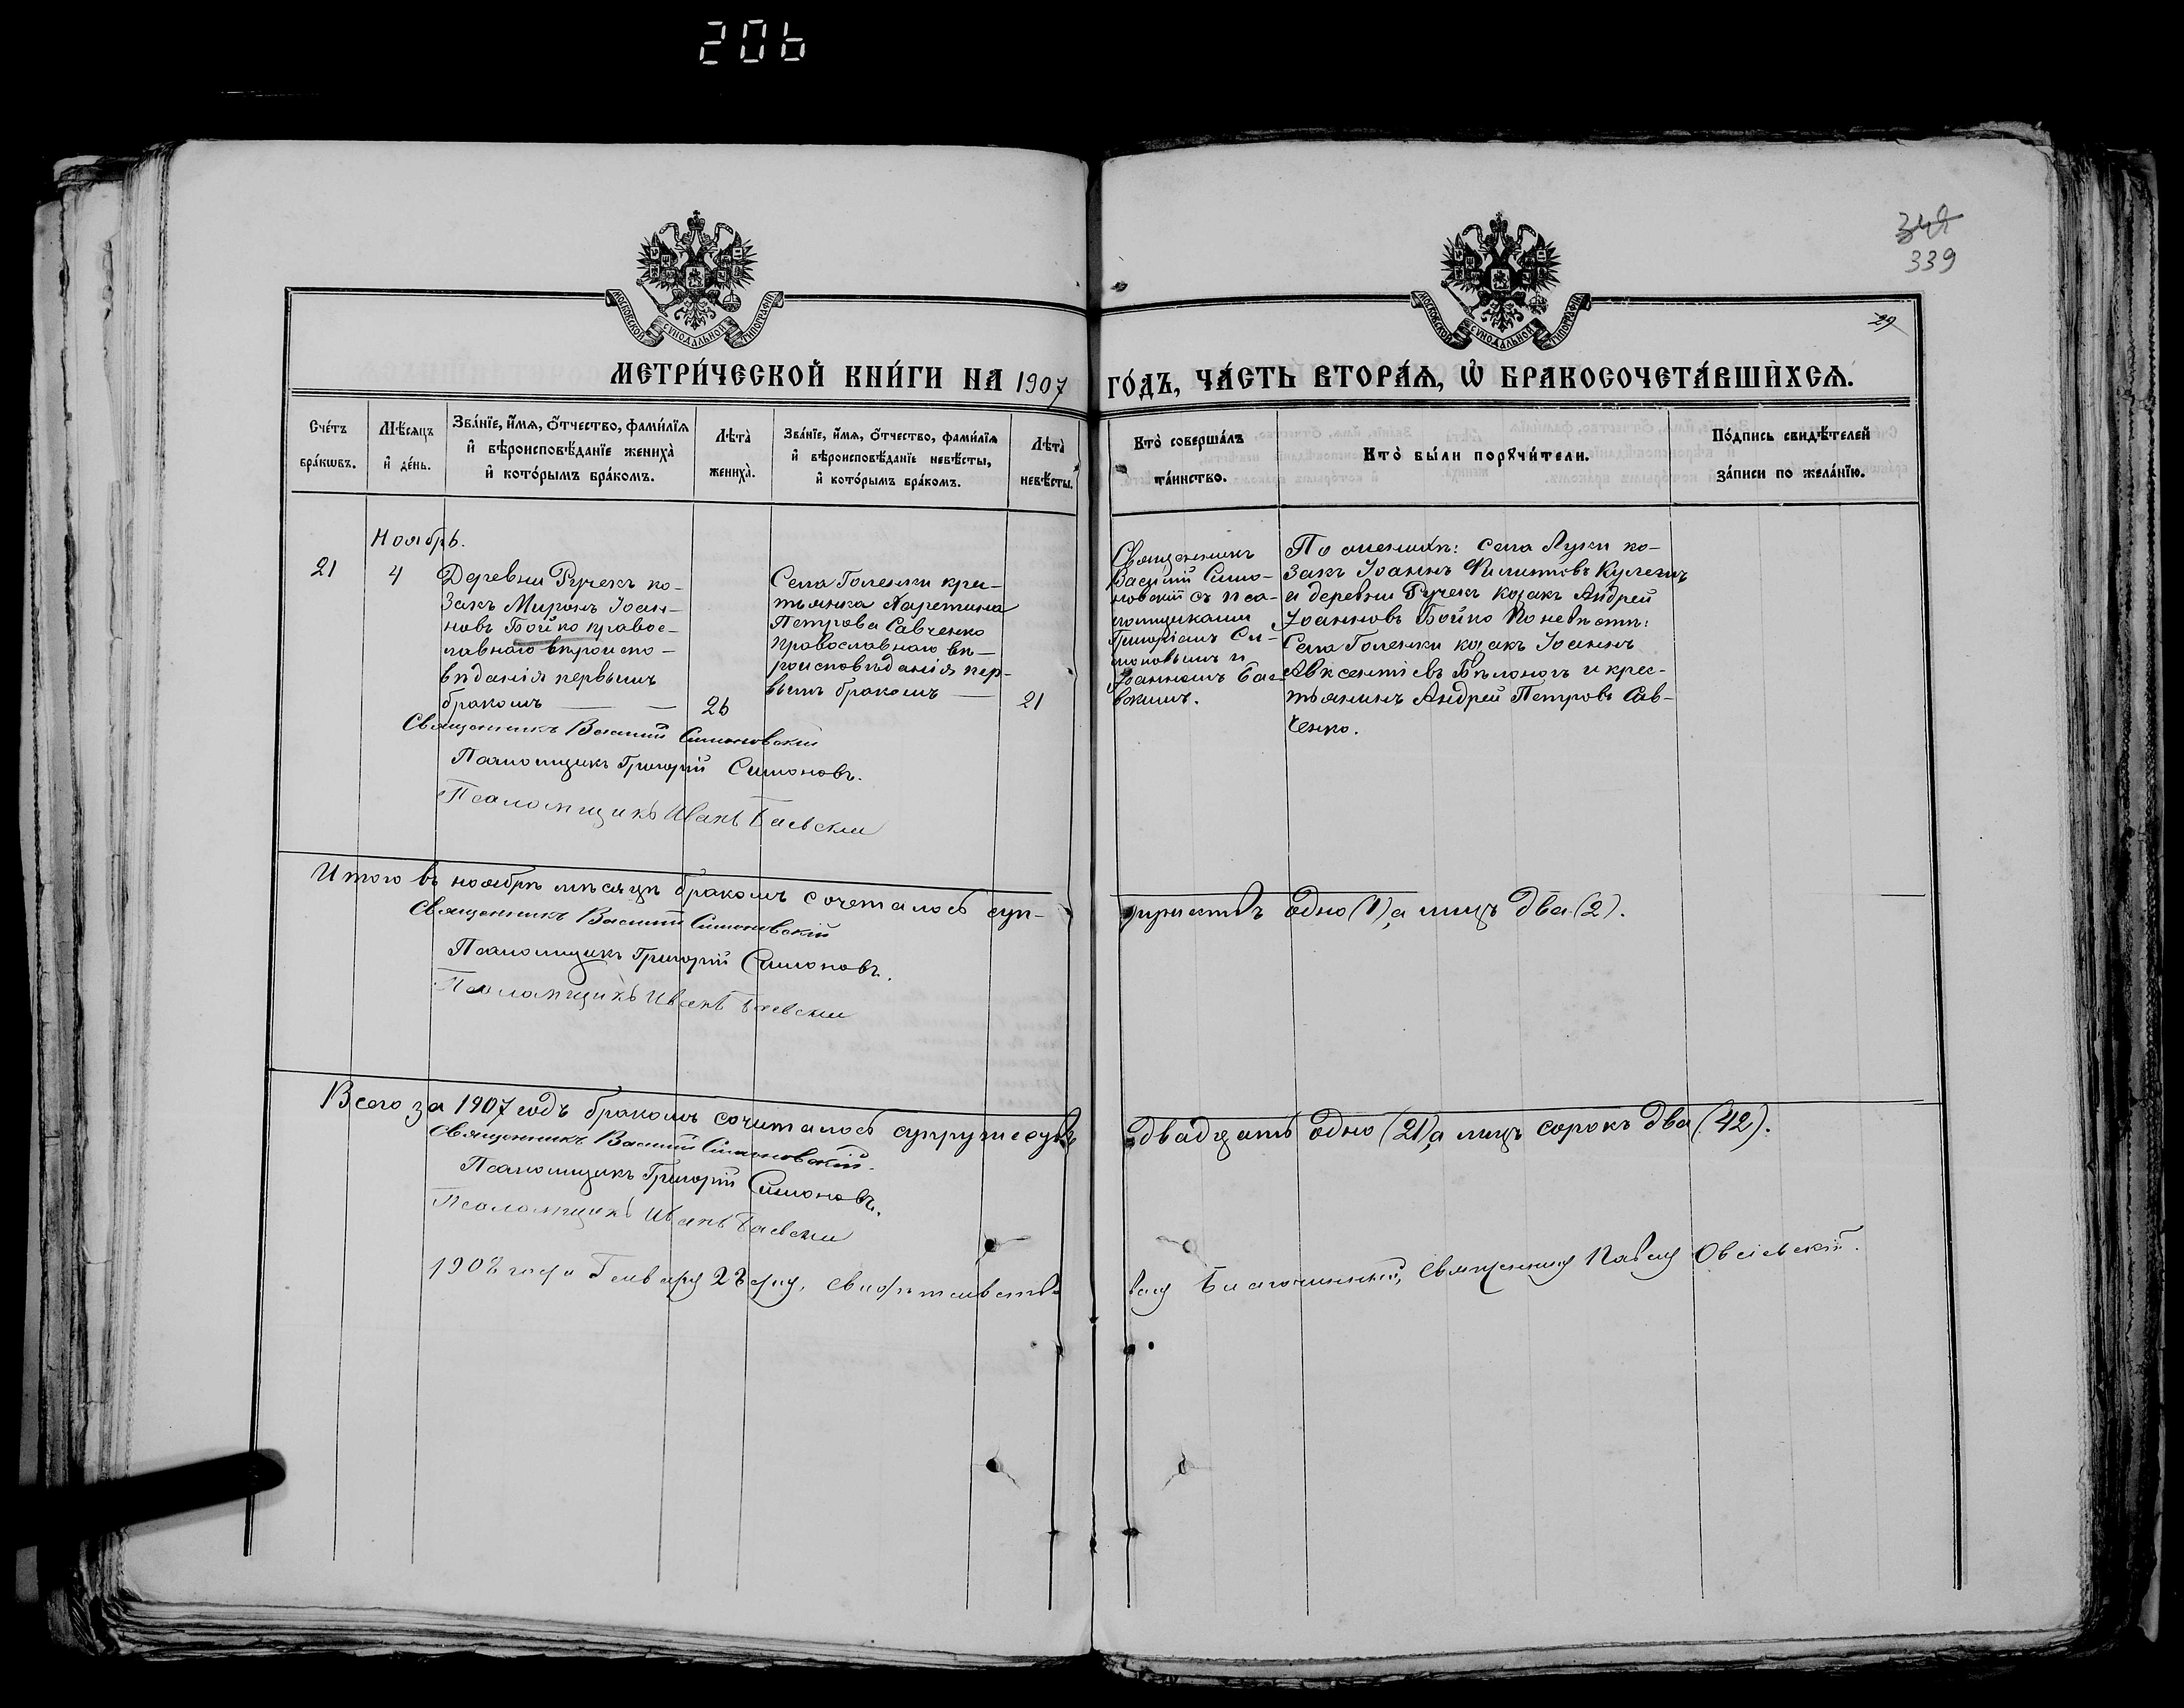 206
342
339
29
МОСКОВСКОЙ СѴНОДАЛЬНОЙ ТИПОГРАФІИ
МОСКОВСКОЙ СѴНОДАЛЬНОЙ ТИПОГРАФІИ
МЕТРИ́ЧЕСКОЙ КНИ́ГИ НА 1907 ГО́ДЪ, ЧА́СТЬ ВТОРА́Ѧ, Ѽ БРАКОСОЧЕТА́ВШИХСѦ.
Сче́тъ бра́кѡвъ.
Мѣ́сѧцъ и҆ де́нь.
Зва́нїе, и҆́мѧ, ѻ҆́тчество, фами́лїѧ и҆ вѣроисповѣ́данїе жениха̀ и҆ кото́рымъ бра́комъ.
Лѣта̀ жениха̀.
Зва́нїе, и҆́мѧ, ѻ҆́тчество, фами́лїѧ и҆ вѣроисповѣ́данїе невѣ́сты, и҆ кото́рымъ бра́комъ.
Лѣта̀ невѣ́сты.
Кто̀ соверша́лъ та́инство.
Кто̀ бы́ли порꙋчи́тели.
По́дпись свидѣ́телей за́писи по жела́нїю.
Ноябрь.
21
4
Деревни Ручекъ ко-
закъ Миронъ Іоан-
новъ Бойко правос-
лавнаго вѣроиспо-
вѣданія первымъ
бракомъ
26
Села Голенки крес-
тьянка Харитина
Петрова Савченко
православнаго вѣ-
роисповѣданія пер-
вымъ бракомъ
21
Священникъ
Василій Симо-
новскій съ пса-
ломщиками
Григоріемъ Си-
моновымъ и
Іоанномъ Бае-
вскимъ.
По женихѣ: Села Луки ко-
закъ Іоаннъ Филиповъ Кулешъ
и деревни Ручекъ козакъ Андрей
Іоанновъ Бойко По невѣстѣ:
Села Голенки козакъ Іоаннъ
Авксентіевъ Бѣлоногъ и крес-
тьянинъ Андрей Петровъ Сав-
ченко.
Священникъ Василій Симоновскій
Псаломщикъ Григорій Симоновъ.
Псаломщикъ Иванъ Баевскій
Итого въ ноябрѣ мѣсяцѣ бракомъ сочеталось суп-
ружествъ одно (1), а лицъ два (2).
Священникъ Василій Симоновскій
Псаломщикъ Григорій Симоновъ.
Псаломщикъ Иванъ Баевскій
Всего за 1907 годъ бракомъ сочиталось супружествъ
двадцать одно (21), а лицъ сорокъ два (42).
Священникъ Василій Симоновскій.
Псаломщикъ Григорій Симоновъ.
Псаломщикъ Иванъ Баевскій
1908 года Генваря 28 дня, свидѣтельство-
валъ Благочинный, Священникъ Павелъ Овсіевскій.